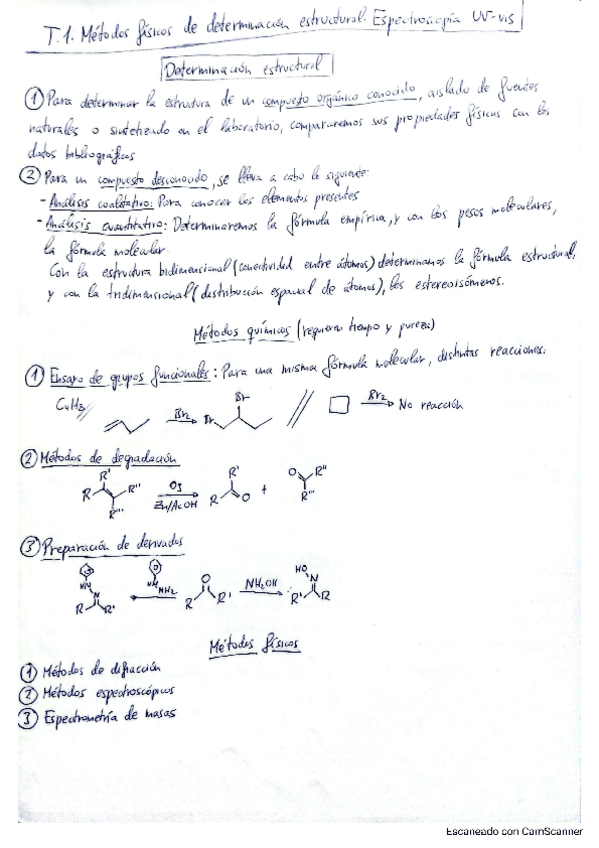 T.1. Métodos físicos de determinación estructural. Espectroscopía UV-vis
Determinación estructural
① Para determinar la estructura de un compuesto orgánico conocido, aislado de fuentes
naturales o sintetizado en el laboratorio, compararemos sus propiedades físicas con los
datos bibliográficos
② Para un compuesto desconocido, se lleva a cabo lo siguiente:
- Análisis cualitativo: Para conocer los elementos presentes
- Análisis cuantitativo: Determinaremos la fórmula empírica, y con los pesos moleculares,
la fórmula molecular
Con la estructura bidimensional (conectividad entre átomos) determinamos la fórmula estructural,
y con la tridimensional (distribución espacial de átomos), los estereoisómeros.
Métodos químicos (requieren tiempo y pureza)
① Ensayo de grupos funcionales: Para una misma fórmula molecular, distintas reacciones.
Br₂ Br Br Br₂ No reacción
② Métodos de degradación
R R' R'' R''' O₃ Zn/AcOH R R' O + O R'' R'''
③ Preparación de derivados
HN N R R' HN NH₂ O R R' NH₂OH HO N R' R
Métodos físicos
① Métodos de difracción
② Métodos espectroscópicos
③ Espectrometría de masas
Escaneado con CamScanner